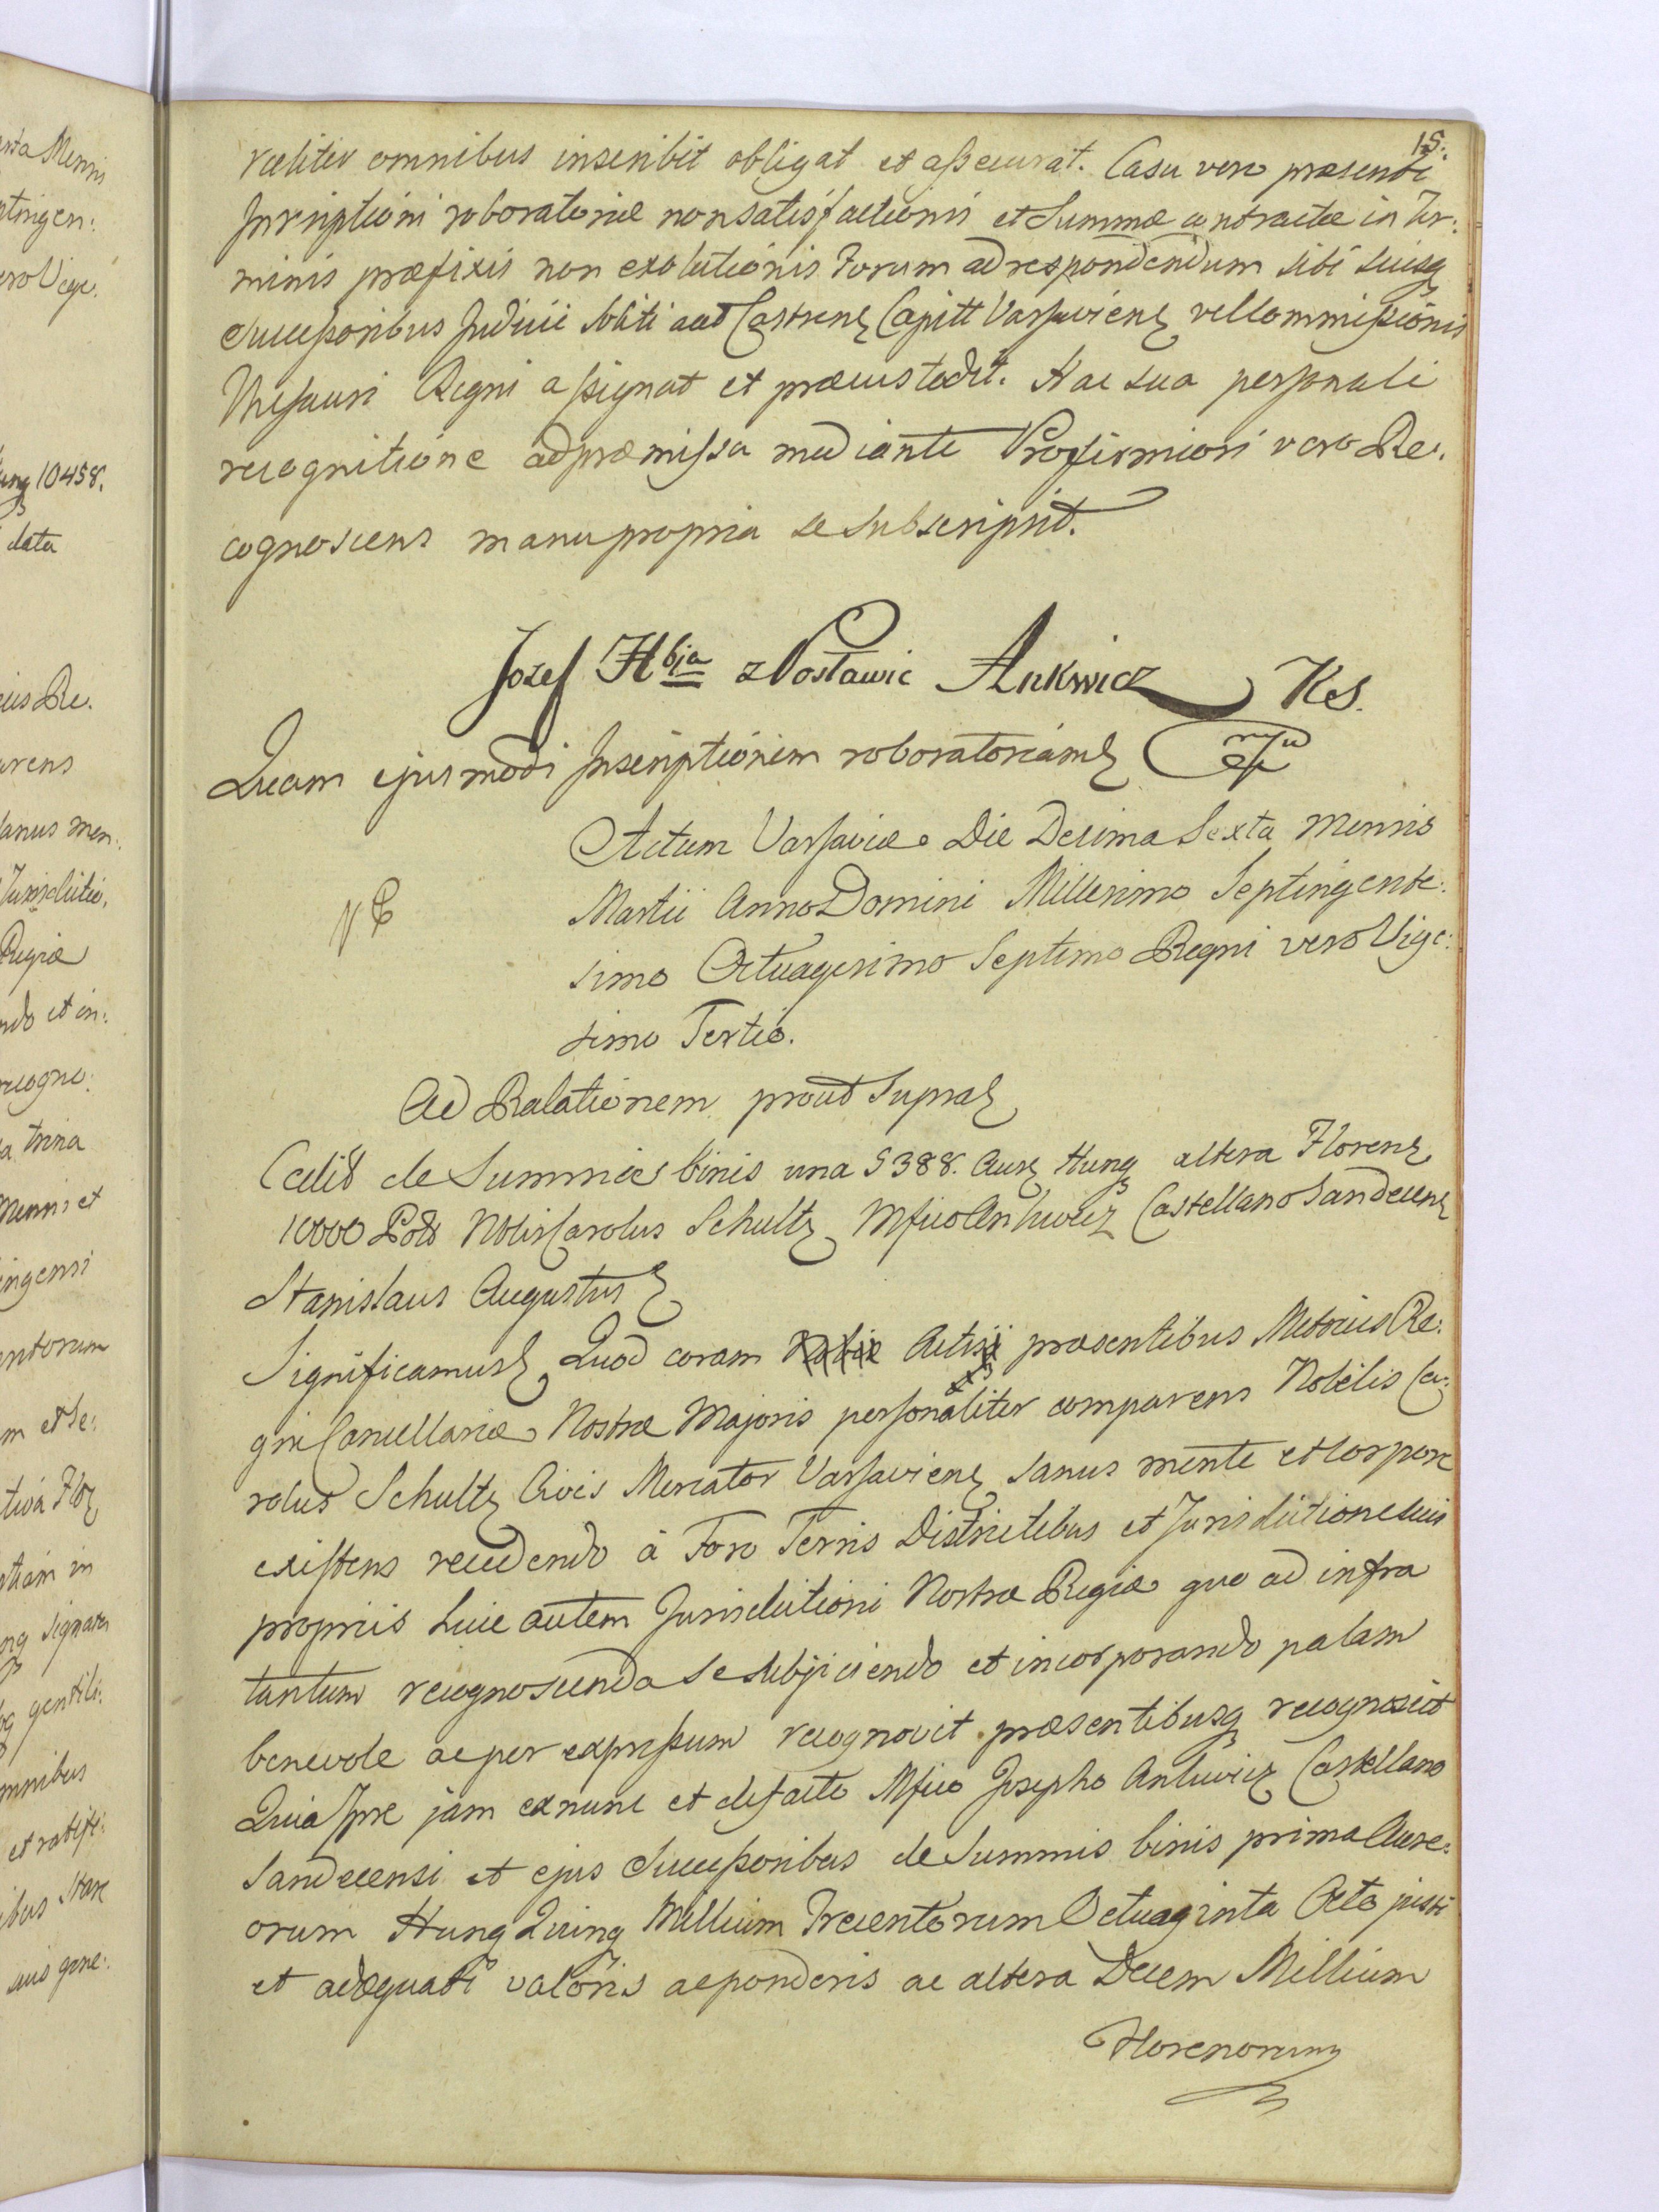 15.
raliter omnibus inscribit obligat et assecurat. Casu vero præsenti
Inscriptioni roboratoriæ nonsatisfactionis et Summæ contractæ in Ter:
minis præfixis non exolutionis Forum ad respondendum sibi suisq
Successoribus Judicii Soliti aut Castren Capitt Varsavien vel Commissionis
Thesauri Regni assignat et præcustodit. Hac sua personali
recognitione ad præmissa mediante Pro firmiori vero Re.
cognoscens manu propria se subscripsit.
Jozef Hbia z Posławic Ankwicz KS.
Quam ejusmodi Inscriptionem roboratoriam
Actum Varsaviæ Die Decima Sexta Mensis
Martii Anno Domini Millesimo Septingente:
simo Octuagesimo Septimo Regni vero Vige:
simo Tertio.
Ad Relationem prout Supra
Cedit de Summis binis una 5388. Aure Hung altera Floren
10000 Pol Nblis Carolus Schultz Mfico Ankwicz Castellano Sandecen
Stanislaus Augustus
Significamus Quod coram Actis præsentibus Metrices Re:
gni Cancellariæ Nostræ Majoris personaliter comparens Nobilis Ca:
rolus Schultz Civis Mercator Varsavien sanus mente et Corpore
existens recedendo à Foro Terris Districtibus et Jurisdictione suis
propriis huic autem Jurisdictioni Nostræ Regiæ quo ad infra
tantum recognoscenda se subjiciendo et incorporando palam
benevole ac per expressum recognovit præsentibusq recognoscit
Quia Ipse jam ex nunc et de facto Mfico Josepho Ankwicz Castellano
Sandecensi et ejus Successoribus de Summis binis prima Aure:
orum Hung Quinq Millium Trecentorum Octuaginta Octo justi
et adæquati valoris ac ponderis ac altera Decem Millium
Florenorum